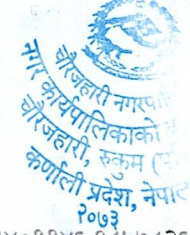 चौरजहारी नगरपा
नगर कार्यपालिकाको
चौरजहारी, रुकुम (
कर्णाली प्रदेश, नेपाल
२०७३